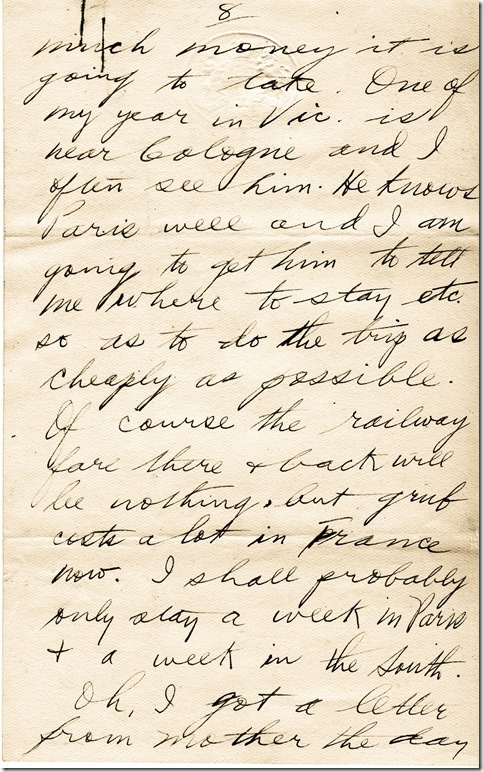 8
much money it is
going to take. One of
my year in Vic. is
near Cologne and I
often see him. He knows
Paris well and I am
going to get him to tell
me where to stay etc.
so as to do the trip as
cheaply as possible.
Of course the railway
fare there + back will
be nothing, but grub
costs a lot in France
now. I shall probably
only stay a week in Paris
+ a week in the South.
Oh, I got a letter
from mother the day